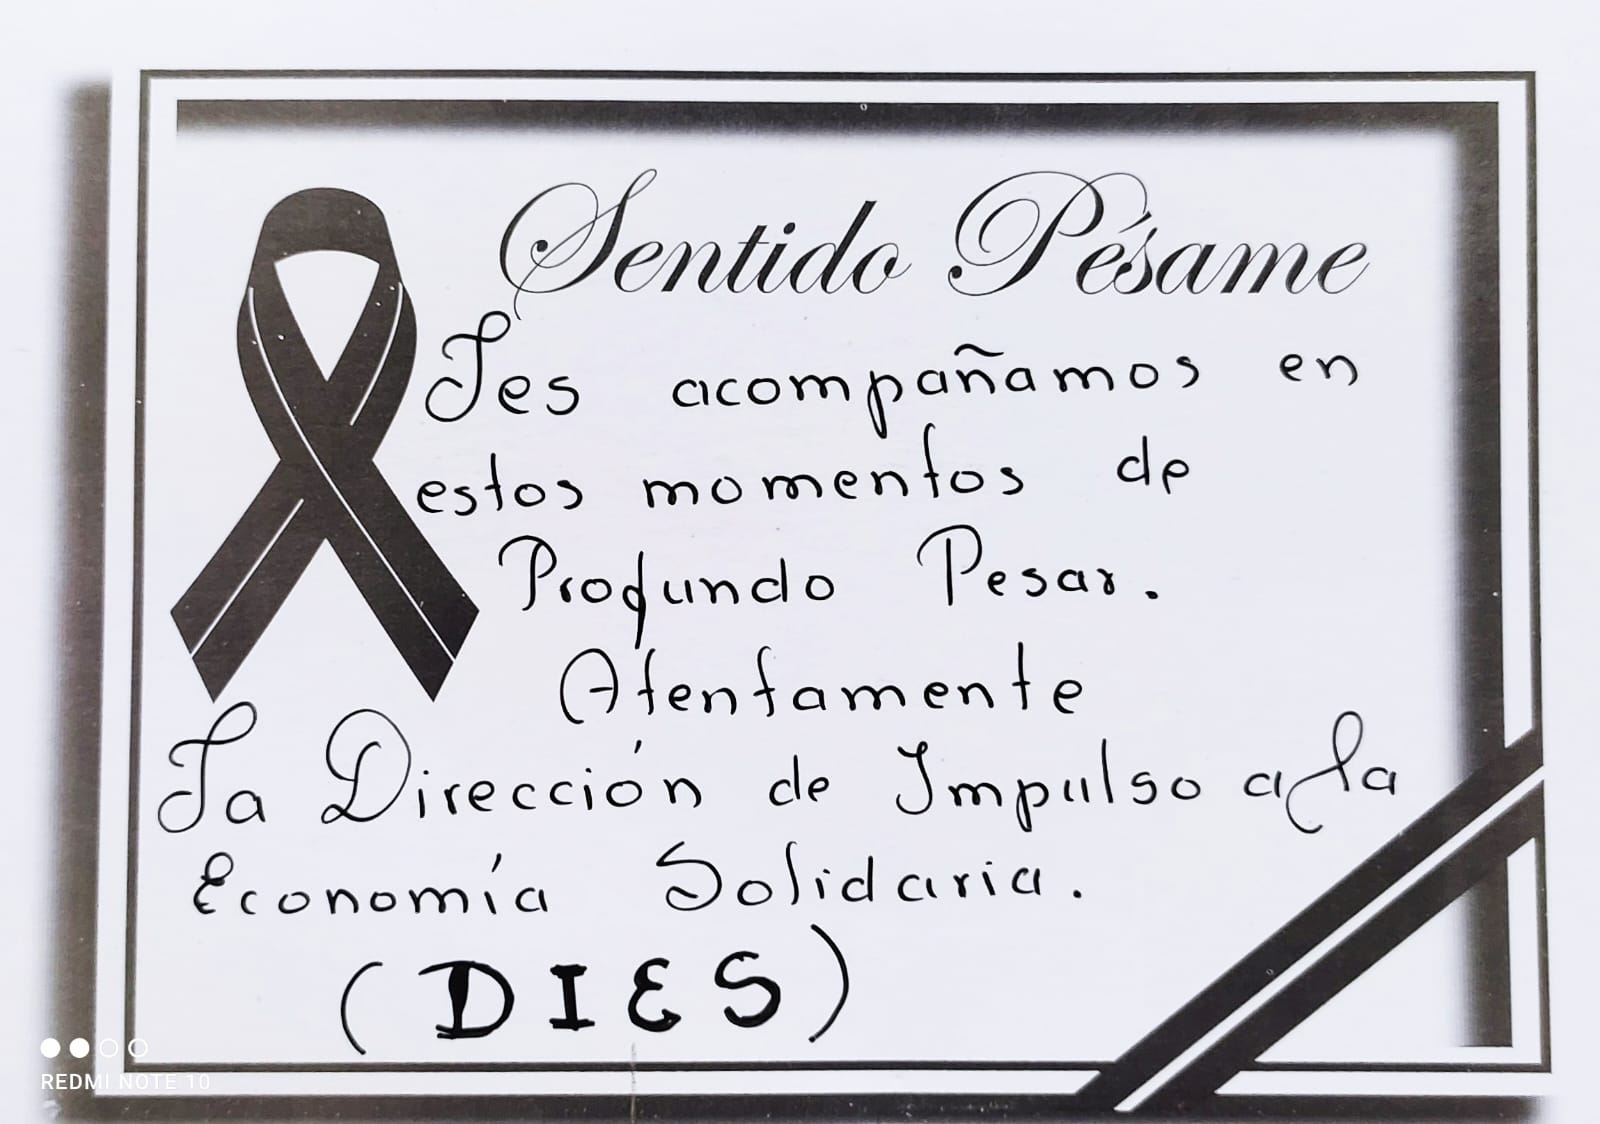 Sentido Pésame
Les acompañamos en
estos momentos de
Profundo Pesar.
Atentamente
La Dirección de Impulso a la
Economía Solidaria.
(DIES)
REDMI NOTE 10